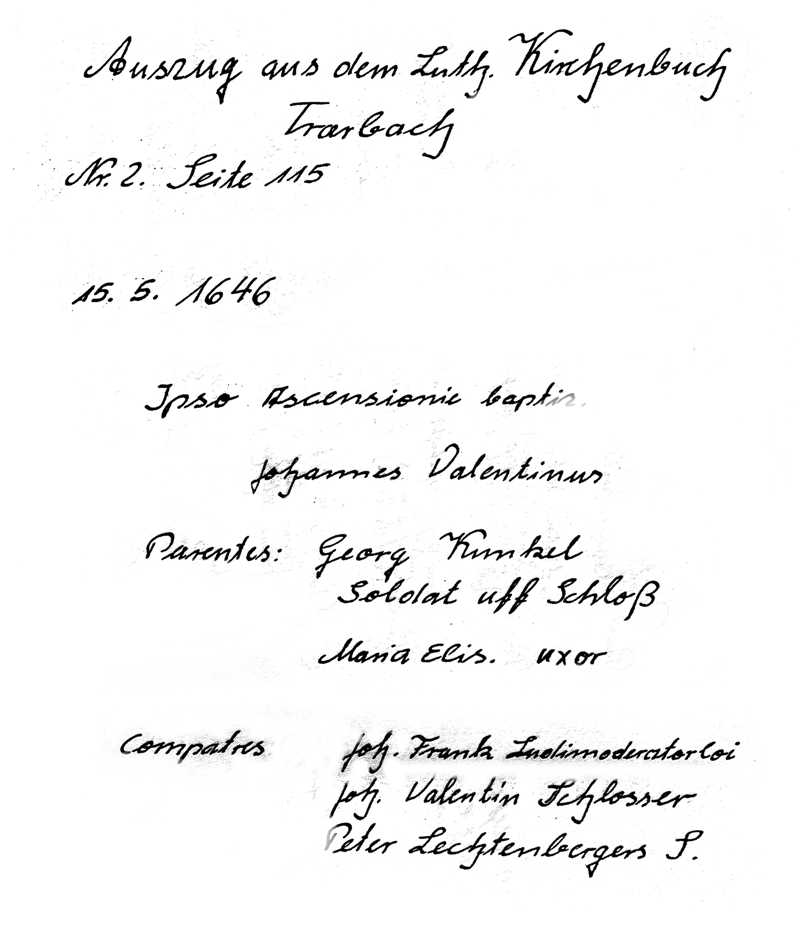 Auszug aus dem Luth. Kirchenbuch
Trarbach
Nr. 2. Seite 115
15. 5. 1646
Ipso Ascensionie baptiz.
Johannes Valentinus
Parentes: Georg Kunkel
Soldat uff Schloß
Maria Elis. uxor
Compatres Joh. Frank Ludimoderator loi
Joh. Valentin Schlosser
Peter Lechtenbergers S.